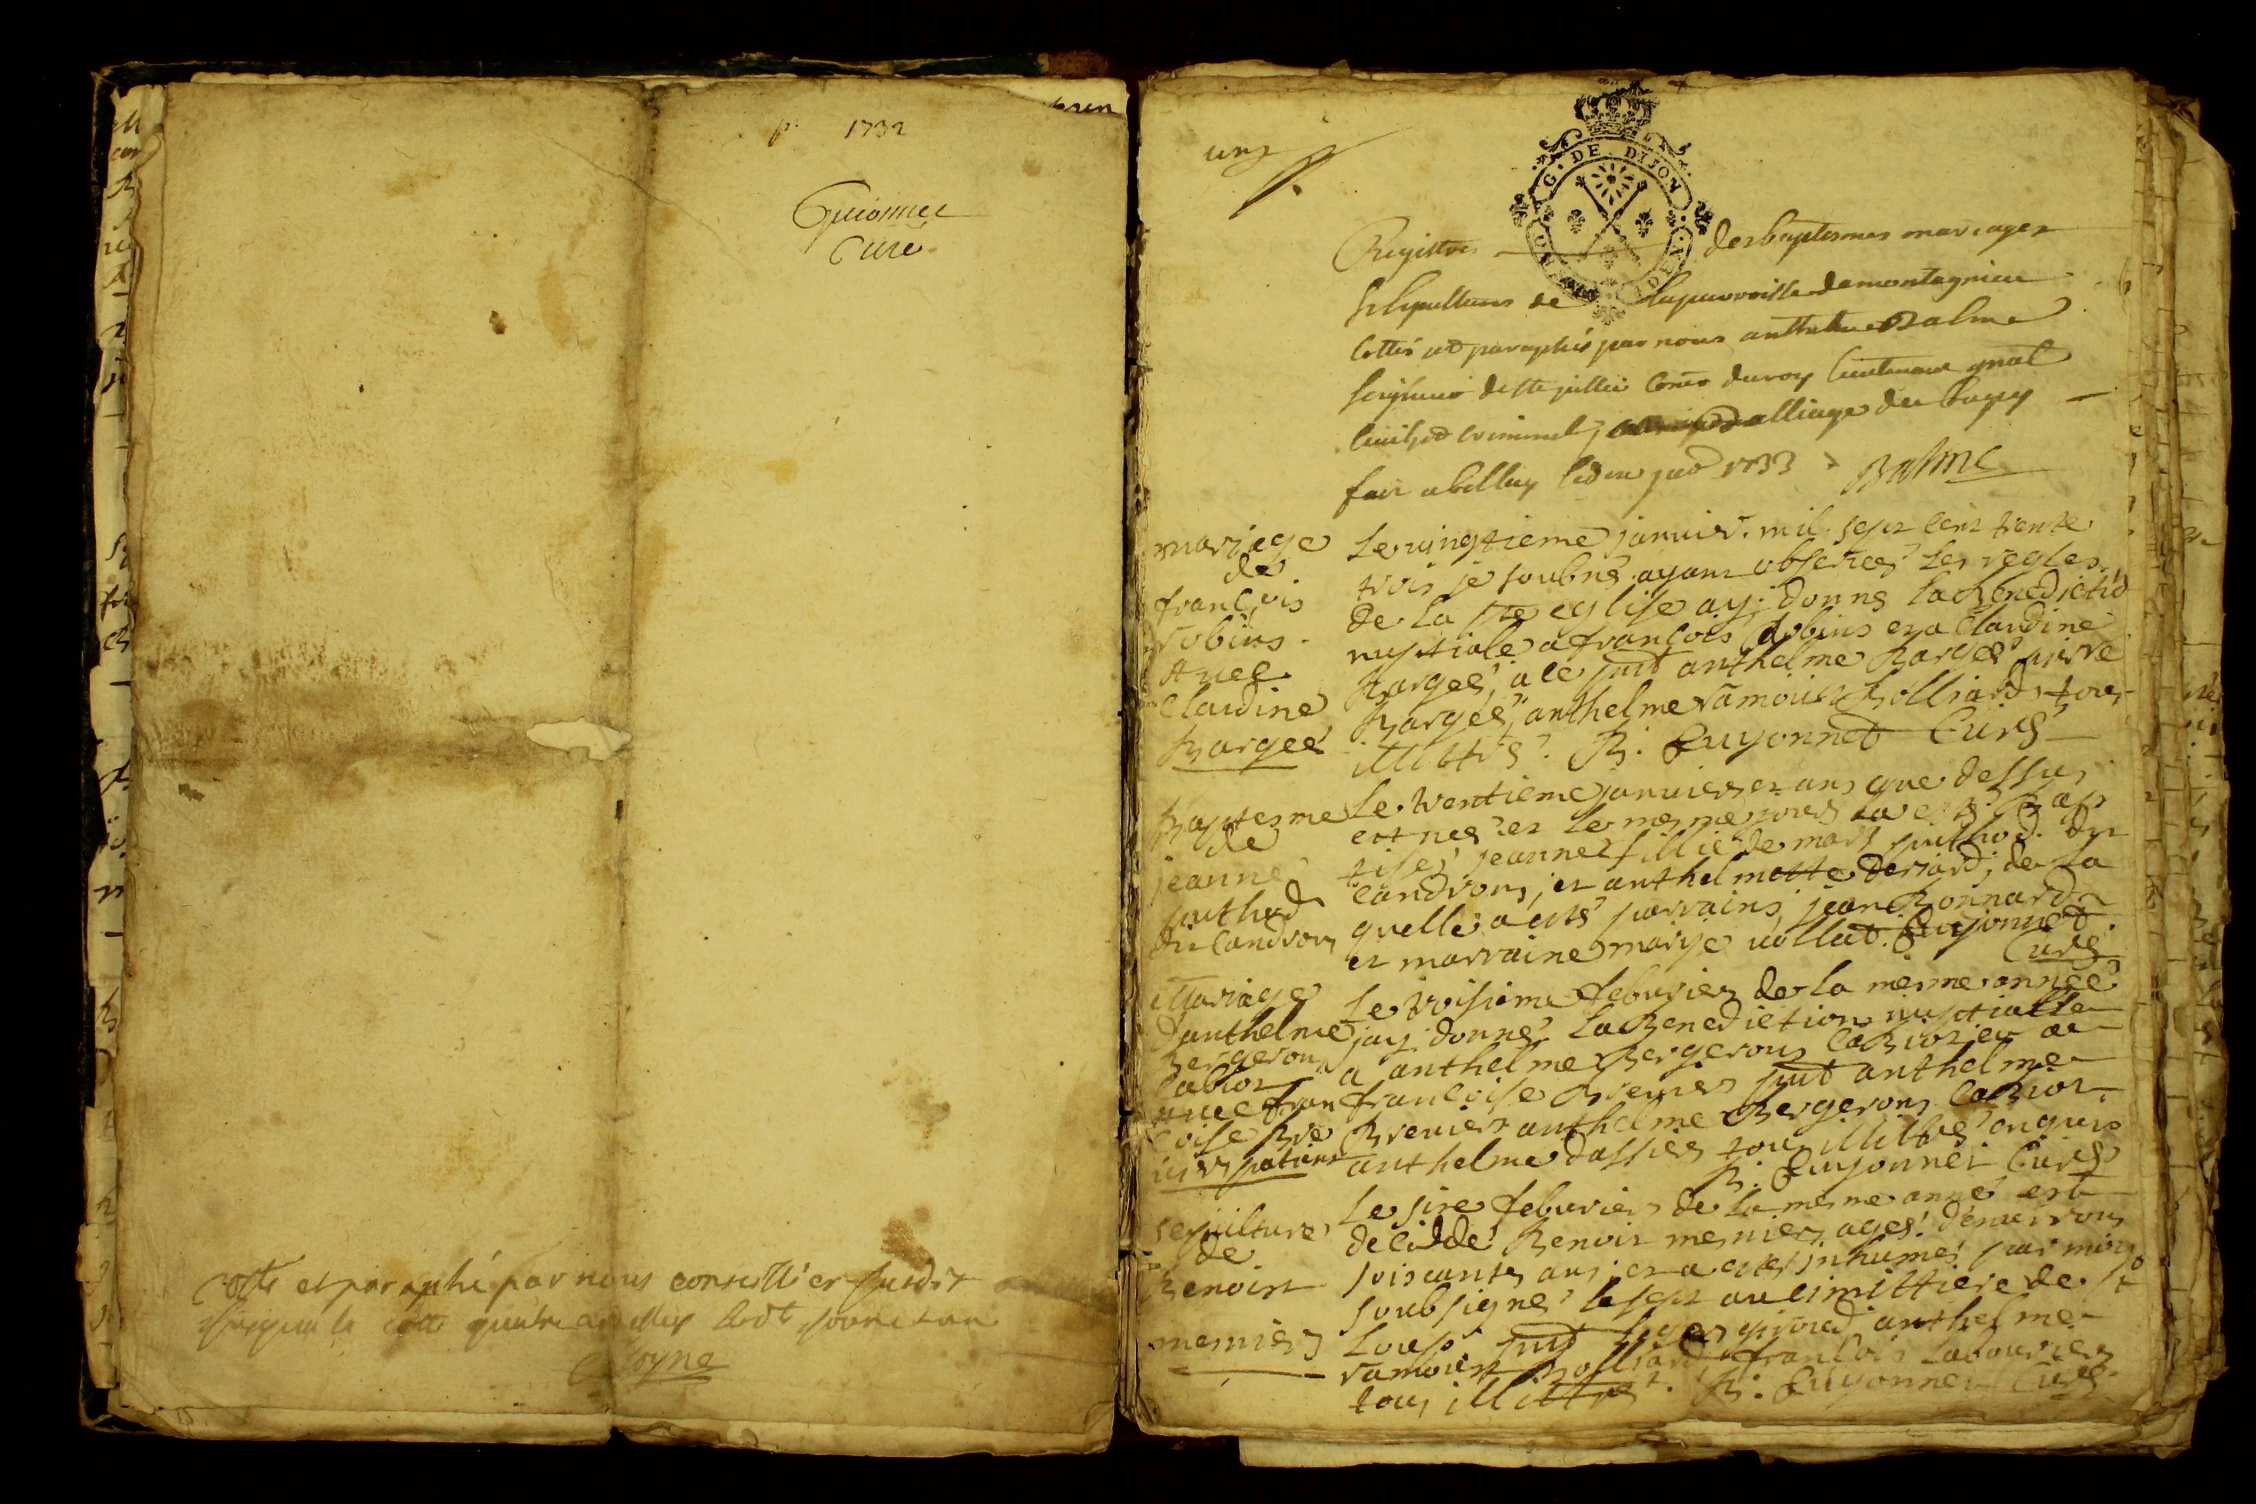 1732
Guionnet
Curé
Cotte et paraphé par nous conseiller susdit
jusqua la cotte quatre
un
G. DE DIJON
Registre des baptesmes mariages
sepultures de la parroisse de montagnieu
cottés et paraphé par nous anthelme Balme
seigneur de ste jullie Coner du roy lieutenant gnal
civil et criminel au balliage du bugey
fait a belley 1733 Balme
mariage
de
françois
robins
avec
Claudine
Bargee
Le vingtieme janvier mil sept cent trente
trois je soubné ayant observee les regles
de la ste eglise ay donne la Benedictio
nuptiale a françois robins et a Claudine
Bargee, a ce pnt anthelme Bargee pierre
Bargee, anthelme ramouset Bolliard tous
illittré. B. Guyonnet Curé
Baptesme
de
jeanne
juthod
du landron
Le trentieme janvier et ans que dessus
est nee et le mesme jour a esté Bap
tisee jeanne fillie de marc juthod du
landron, et anthelmette deriard, de la
quelle a esté parrains jean Bonnard
et marraine marye vollet. Guyonnet
Curé
Mariage
d'anthelme
Bergeron
Cabiot
avec fran
coise Bre
nier
Le troisieme febvrier de la mesme année
jay donné la Benediction nuptialle
a anthelme Bergeron CaBiot et a
françoise Brenier pnt anthelme
Brenier anthelme Bergeron CaBiot
anthelme dassier tous illittré enquis
B. Guyonnet Curé
sepulture
de
Benoist
mernier
Le sixe febvrier de la mesme anné est
decedde Benoit mernier agee d'environ
soixante ans et a esté inhumé par moy
soubsigné le sept au cimittiere de st
Loup pnt anthelme
ramouset Bolliard françois Labourier
tous illittre. B. Guyonnet Curé